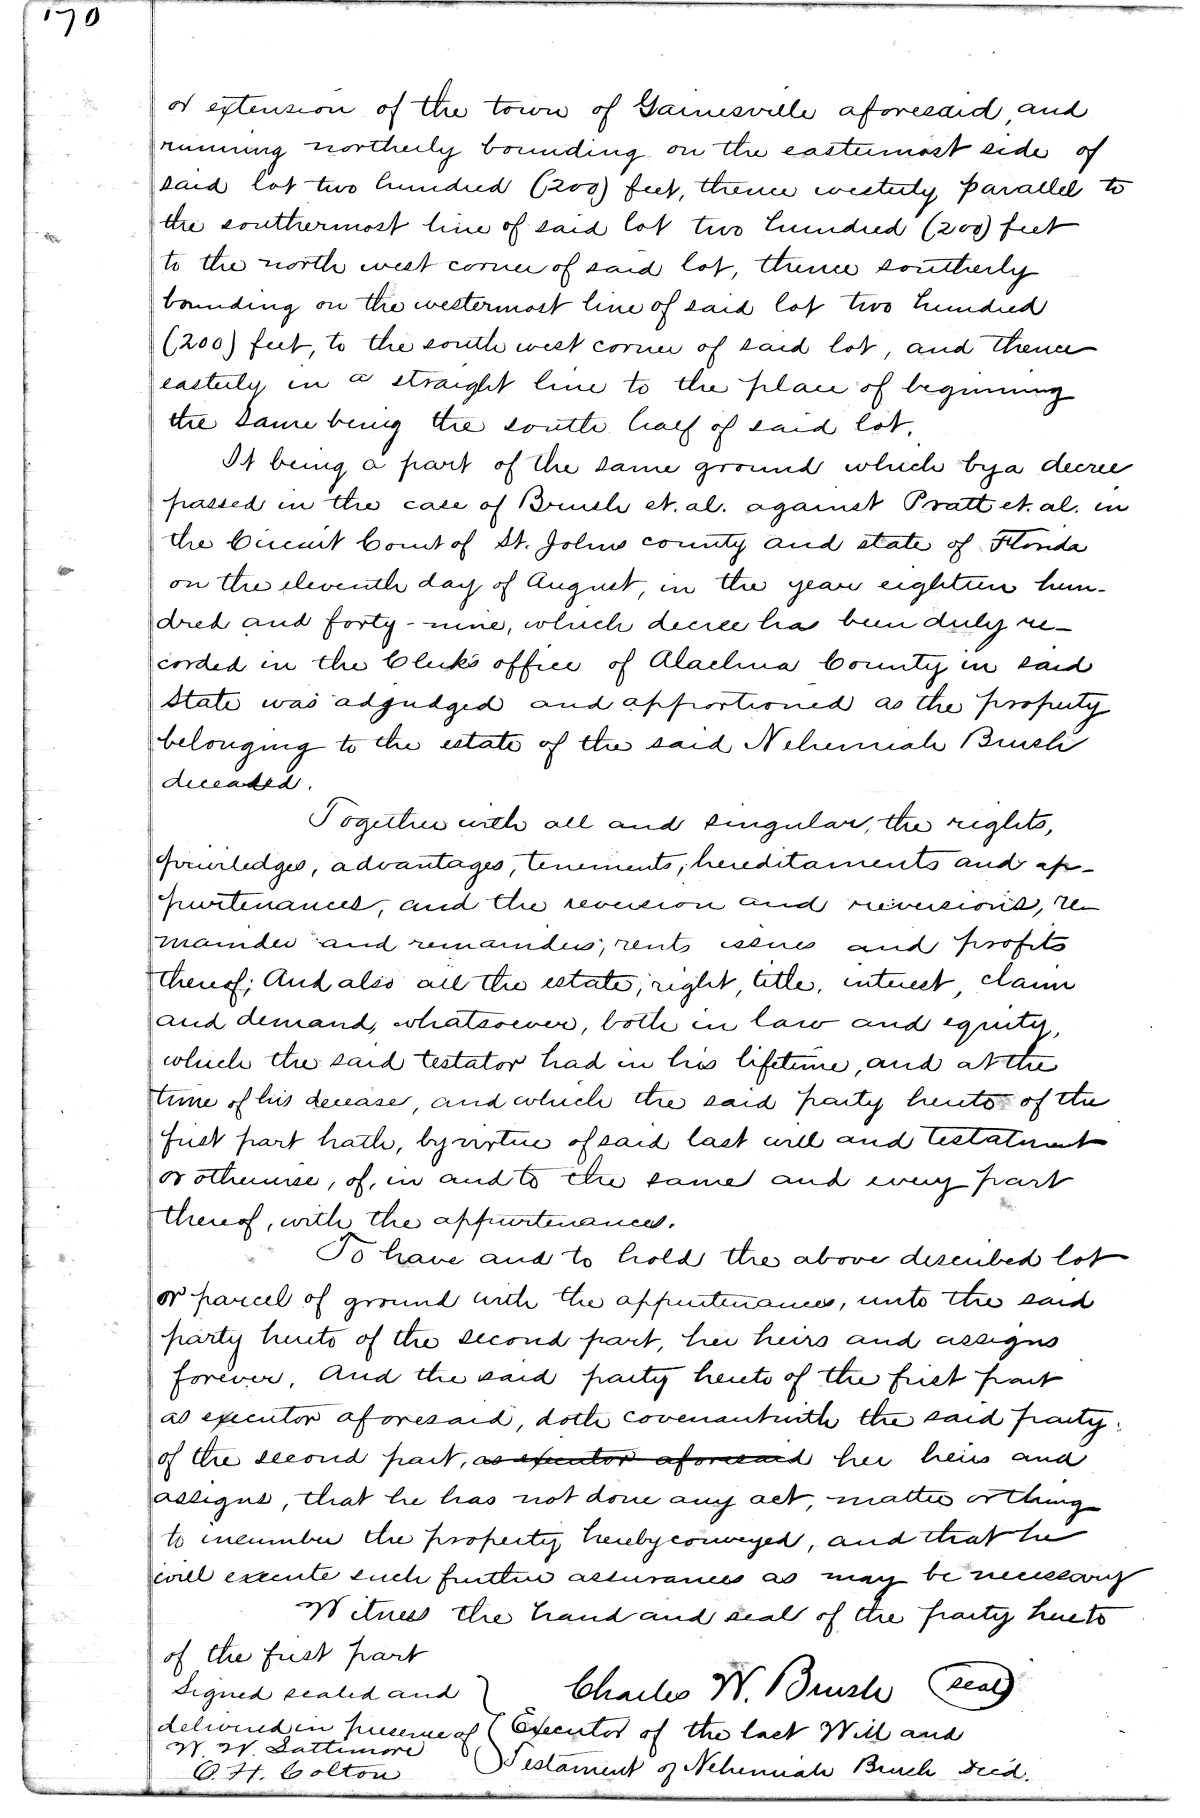 170
or extension of the town of Gainesville aforesaid, and
running northerly bounding on the easternmost side of
said lot two hundred (200) feet, thence westerly parallel to
the southermost line of said lot two hundred (200) feet
to the north west corner of said lot, thence southerly
bounding on the westermost line of said lot two hundred
(200) feet, to the south west corner of said lot, and thence
easterly in a straight line to the place of beginning
the same being the south half of said lot.
It being a part of the same ground which by a decree
passed in the case of Brush et. al. against Pratt et. al. in
the Circuit Court of St. Johns county and state of Florida
on the eleventh day of August, in the year eighteen hun-
dred and forty-nine, which decree has been duly re-
corded in the Clerk's office of Alachua County in said
State was adjudged and apportioned as the property
belonging to the estate of the said Nehemiah Brush
deceased.
Together with all and singular, the rights,
priviledges, advantages, tenements, hereditaments and ap-
purtenances, and the reversion and reversions, re-
mainder and remainders, rents issues and profits
thereof; And also all the estate, right, title, interest, claim
and demand, whatsoever, both in law and equity,
which the said testator had in his lifetime, and at the
time of his decease, and which the said party hereto of the
first part hath, by virtue of said last will and testatment
or otherwise, of, in and to the same and every part
thereof, with the appurtenances.
To have and to hold the above described lot
or parcel of ground with the appurtenances, unto the said
party hereto of the second part, her heirs and assigns
forever. And the said party hereto of the first part
as executor aforesaid, doth covenant with the said party
of the second part, as executor aforesaid her heirs and
assigns, that he has not done any act, matter or thing
to incumber the property hereby conveyed, and that he
will execute such further assurances as may be necessary
Witness the hand and seal of the party hereto
of the first part
Signed sealed and
delivered in presence of
W. W. Lattimore
O. H. Colton
Charles W. Brush (seal)
Executor of the last Will and
Testament of Nehemiah Brush Dec'd.